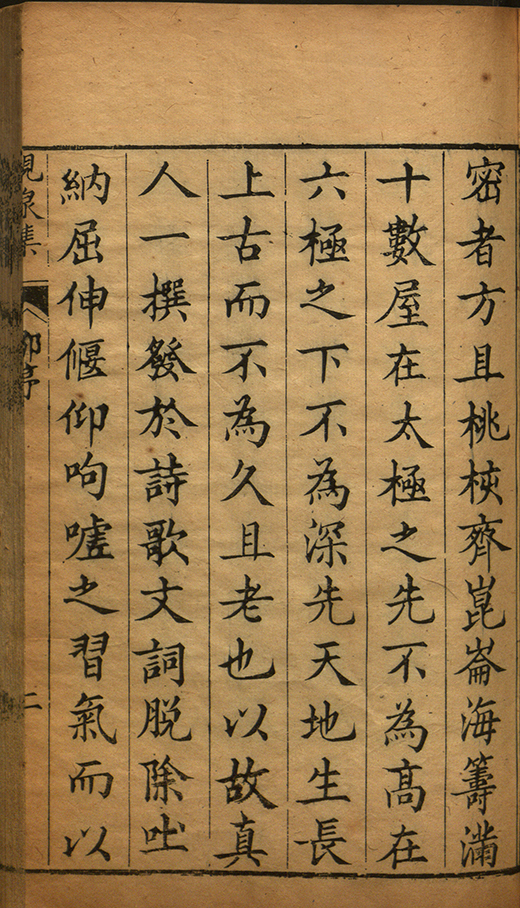 密者方且桃核齊崑崙海籌滿
十數屋在太極之先不為高在
六極之下不為深先天地生長
上古而不為久且老也以故真
人一撰發於詩歌文詞脫除吐
納屈伸偃仰呴噓之習氣而以
峴泉集
序
二